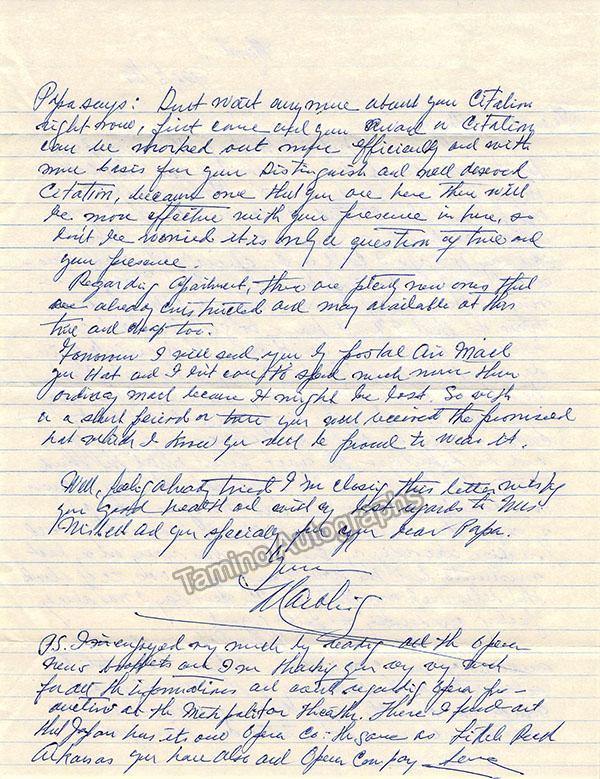 Papa says: Don't wait anymore about your Citation
right now, first come and your award or Citation
can be worked out more efficiently and with
more basis for your Distinguish and well deserved
Citation, because one that you are here then will
be more effective with your presence in here, so
don't be worried it is only a question of time and
your presence.
Regarding apartment, there are plenty new ones
already constructed and may available at this
time and cheap too.
I will send you by postal Air Mail
your Hat and I don't care to spend much more than
ordinary mail because it might be lost. So
in a short period or you will received the promised
hat which I know you will be proud to wear it.
Well, feeling already tired I'm closing this letter wishing
you good health and with my best regards to Mrs
and you specially from your dear Papa.
Yours
P.S. I'm enjoyed very much by reading all the Opera
news and I'm thanking you very very much
for all the informations and regarding Opera
at the Metropolitan Theatre. There I found out
that Japan has its own Opera Co: the same as Little Rock
Arkansas you have also and Opera Company
Tamino Autographs